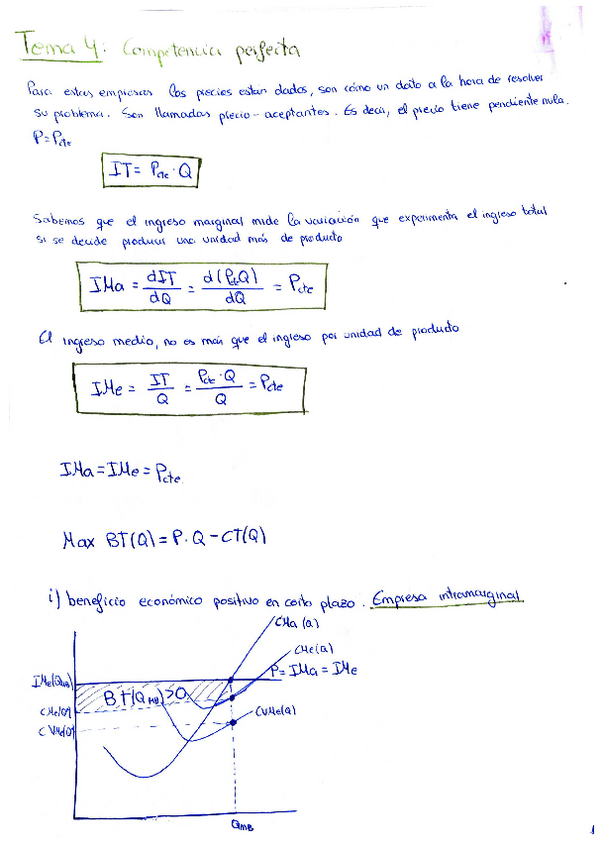 Tema 4: Competencia perfecta
Para estas empresas los precios estan dados, son cómo un dato a la hora de resolver
su problema. Son llamadas precio-aceptantes. Es decir, el precio tiene pendiente nula.
P=Pcte
IT= Pcte·Q
Sabemos que el ingreso marginal mide la variación que experimenta el ingreso total
si se decide producir una unidad más de producto
IMa = dIT/dQ = d(PcteQ)/dQ = Pcte
El ingreso medio, no es más que el ingreso por unidad de producto
IMe = IT/Q = Pcte·Q/Q = Pcte
IMa = IMe = Pcte
Max BT(Q) = P·Q - CT(Q)
i) beneficio económico positivo en corto plazo. Empresa intramarginal
CMa (Q)
CMe(Q)
P= IMa = IMe
IMe(QMB)
BT(QMB)>0
CMe(Q)
CVMe(Q)
CVMe(Q)
QMB